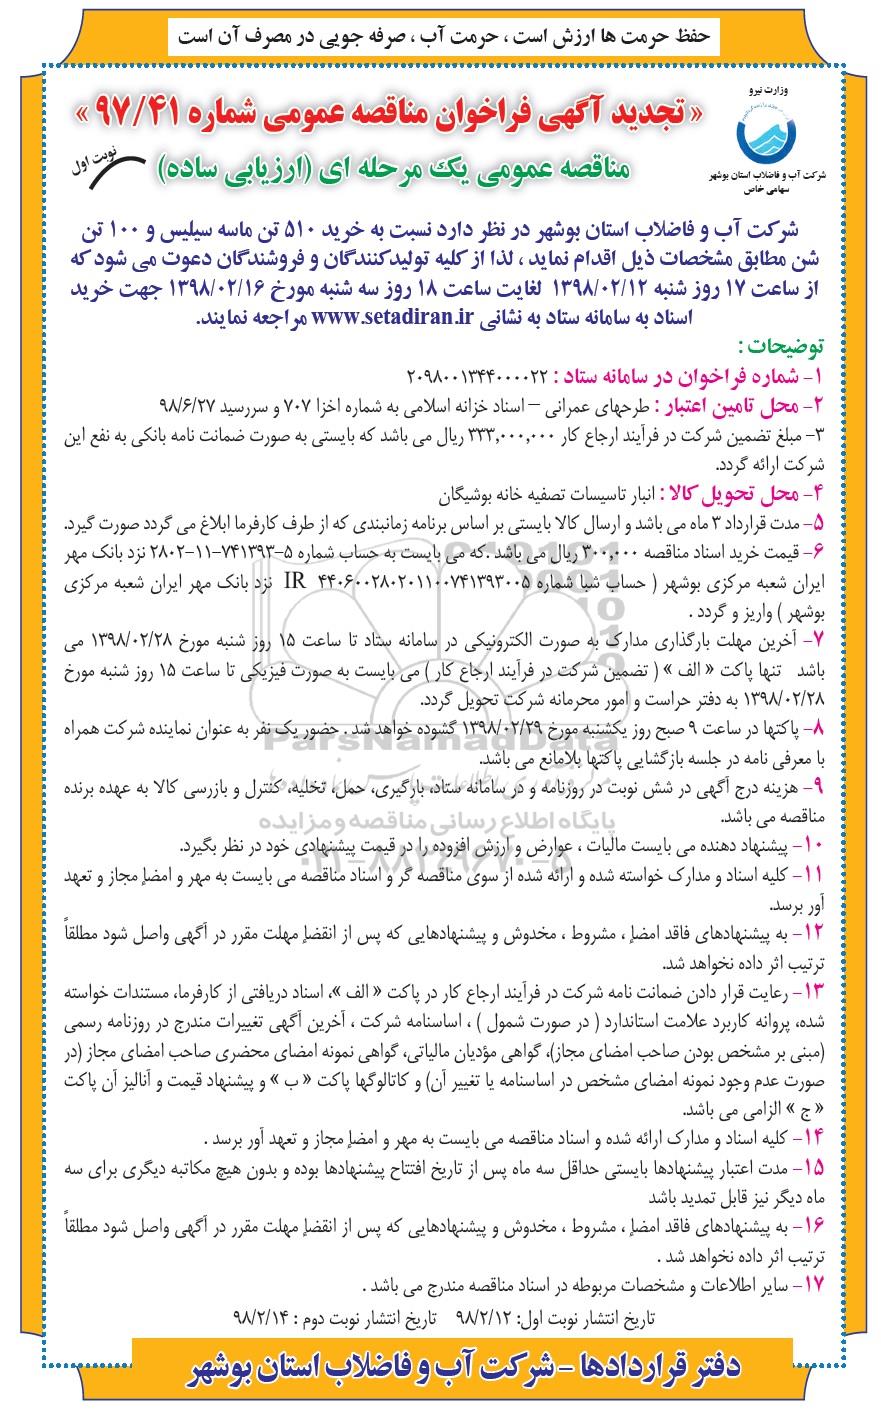 حفظ حرمت ها ارزش است ، حرمت آب ، صرفه جویی در مصرف آن است
وزارت نیرو
شرکت آب و فاضلاب استان بوشهر
سهامی خاص
« تجدید آگهی فراخوان مناقصه عمومی شماره ۹۷/۴۱ »
مناقصه عمومی یک مرحله ای (ارزیابی ساده)
نوبت اول
شرکت آب و فاضلاب استان بوشهر در نظر دارد نسبت به خرید ۵۱۰ تن ماسه سیلیس و ۱۰۰ تن
شن مطابق مشخصات ذیل اقدام نماید ، لذا از کلیه تولیدکنندگان و فروشندگان دعوت می شود که
از ساعت ۱۷ روز شنبه ۱۳۹۸/۰۲/۱۲ لغایت ساعت ۱۸ روز سه شنبه مورخ ۱۳۹۸/۰۲/۱۶ جهت خرید
اسناد به سامانه ستاد به نشانی www.setadiran.ir مراجعه نمایند.
توضیحات :
۱- شماره فراخوان در سامانه ستاد : ۲۰۹۸۰۰۱۳۴۴۰۰۰۰۲۲
۲- محل تامین اعتبار : طرحهای عمرانی – اسناد خزانه اسلامی به شماره اخزا ۷۰۷ و سررسید ۹۸/۶/۲۷
۳- مبلغ تضمین شرکت در فرآیند ارجاع کار ۳۳۳,۰۰۰,۰۰۰ ریال می باشد که بایستی به صورت ضمانت نامه بانکی به نفع این
شرکت ارائه گردد.
۴- محل تحویل کالا : انبار تاسیسات تصفیه خانه بوشیگان
۵- مدت قرارداد ۳ ماه می باشد و ارسال کالا بایستی بر اساس برنامه زمانبندی که از طرف کارفرما ابلاغ می گردد صورت گیرد.
۶- قیمت خرید اسناد مناقصه ۳۰۰,۰۰۰ ریال می باشد .که می بایست به حساب شماره ۵-۷۴۱۳۹۳-۱۱-۲۸۰۲ نزد بانک مهر
ایران شعبه مرکزی بوشهر ( حساب شبا شماره ۴۴۰۶۰۰۲۸۰۲۰۱۱۰۰۷۴۱۳۹۳۰۰۵ IR نزد بانک مهر ایران شعبه مرکزی
بوشهر ) واریز و گردد .
۷- آخرین مهلت بارگذاری مدارک به صورت الکترونیکی در سامانه ستاد تا ساعت ۱۵ روز شنبه مورخ ۱۳۹۸/۰۲/۲۸ می
باشد تنها پاکت « الف » ( تضمین شرکت در فرآیند ارجاع کار ) می بایست به صورت فیزیکی تا ساعت ۱۵ روز شنبه مورخ
۱۳۹۸/۰۲/۲۸ به دفتر حراست و امور محرمانه شرکت تحویل گردد.
۸- پاکتها در ساعت ۹ صبح روز یکشنبه مورخ ۱۳۹۸/۰۲/۲۹ گشوده خواهد شد . حضور یک نفر به عنوان نماینده شرکت همراه
با معرفی نامه در جلسه بازگشایی پاکتها بلامانع می باشد.
۹- هزینه درج آگهی در شش نوبت در روزنامه و در سامانه ستاد، بارگیری، حمل، تخلیه، کنترل و بازرسی کالا به عهده برنده
مناقصه می باشد.
۱۰- پیشنهاد دهنده می بایست مالیات ، عوارض و ارزش افزوده را در قیمت پیشنهادی خود در نظر بگیرد.
۱۱- کلیه اسناد و مدارک خواسته شده و ارائه شده از سوی مناقصه گر و اسناد مناقصه می بایست به مهر و امضإ مجاز و تعهد
آور برسد.
۱۲- به پیشنهادهای فاقد امضإ ، مشروط ، مخدوش و پیشنهادهایی که پس از انقضإ مهلت مقرر در آگهی واصل شود مطلقاً
ترتیب اثر داده نخواهد شد.
۱۳- رعایت قرار دادن ضمانت نامه شرکت در فرآیند ارجاع کار در پاکت « الف »، اسناد دریافتی از کارفرما، مستندات خواسته
شده، پروانه کاربرد علامت استاندارد ( در صورت شمول ) ، اساسنامه شرکت ، آخرین آگهی تغییرات مندرج در روزنامه رسمی
(مبنی بر مشخص بودن صاحب امضای مجاز)، گواهی مؤدیان مالیاتی، گواهی نمونه امضای محضری صاحب امضای مجاز (در
صورت عدم وجود نمونه امضای مشخص در اساسنامه یا تغییر آن) و کاتالوگها پاکت « ب » و پیشنهاد قیمت و آنالیز آن پاکت
« ج » الزامی می باشد.
۱۴- کلیه اسناد و مدارک ارائه شده و اسناد مناقصه می بایست به مهر و امضإ مجاز و تعهد آور برسد .
۱۵- مدت اعتبار پیشنهادها بایستی حداقل سه ماه پس از تاریخ افتتاح پیشنهادها بوده و بدون هیچ مکاتبه دیگری برای سه
ماه دیگر نیز قابل تمدید باشد
۱۶- به پیشنهادهای فاقد امضإ ، مشروط ، مخدوش و پیشنهادهایی که پس از انقضإ مهلت مقرر در آگهی واصل شود مطلقاً
ترتیب اثر داده نخواهد شد .
۱۷- سایر اطلاعات و مشخصات مربوطه در اسناد مناقصه مندرج می باشد .
تاریخ انتشار نوبت اول: ۹۸/۲/۱۲ تاریخ انتشار نوبت دوم : ۹۸/۲/۱۴
دفتر قراردادها - شرکت آب و فاضلاب استان بوشهر
ParsNamadData
پایگاه اطلاع رسانی مناقصه و مزایده
۰۲۱-۸۸۳۴۹۶۷۰-۵